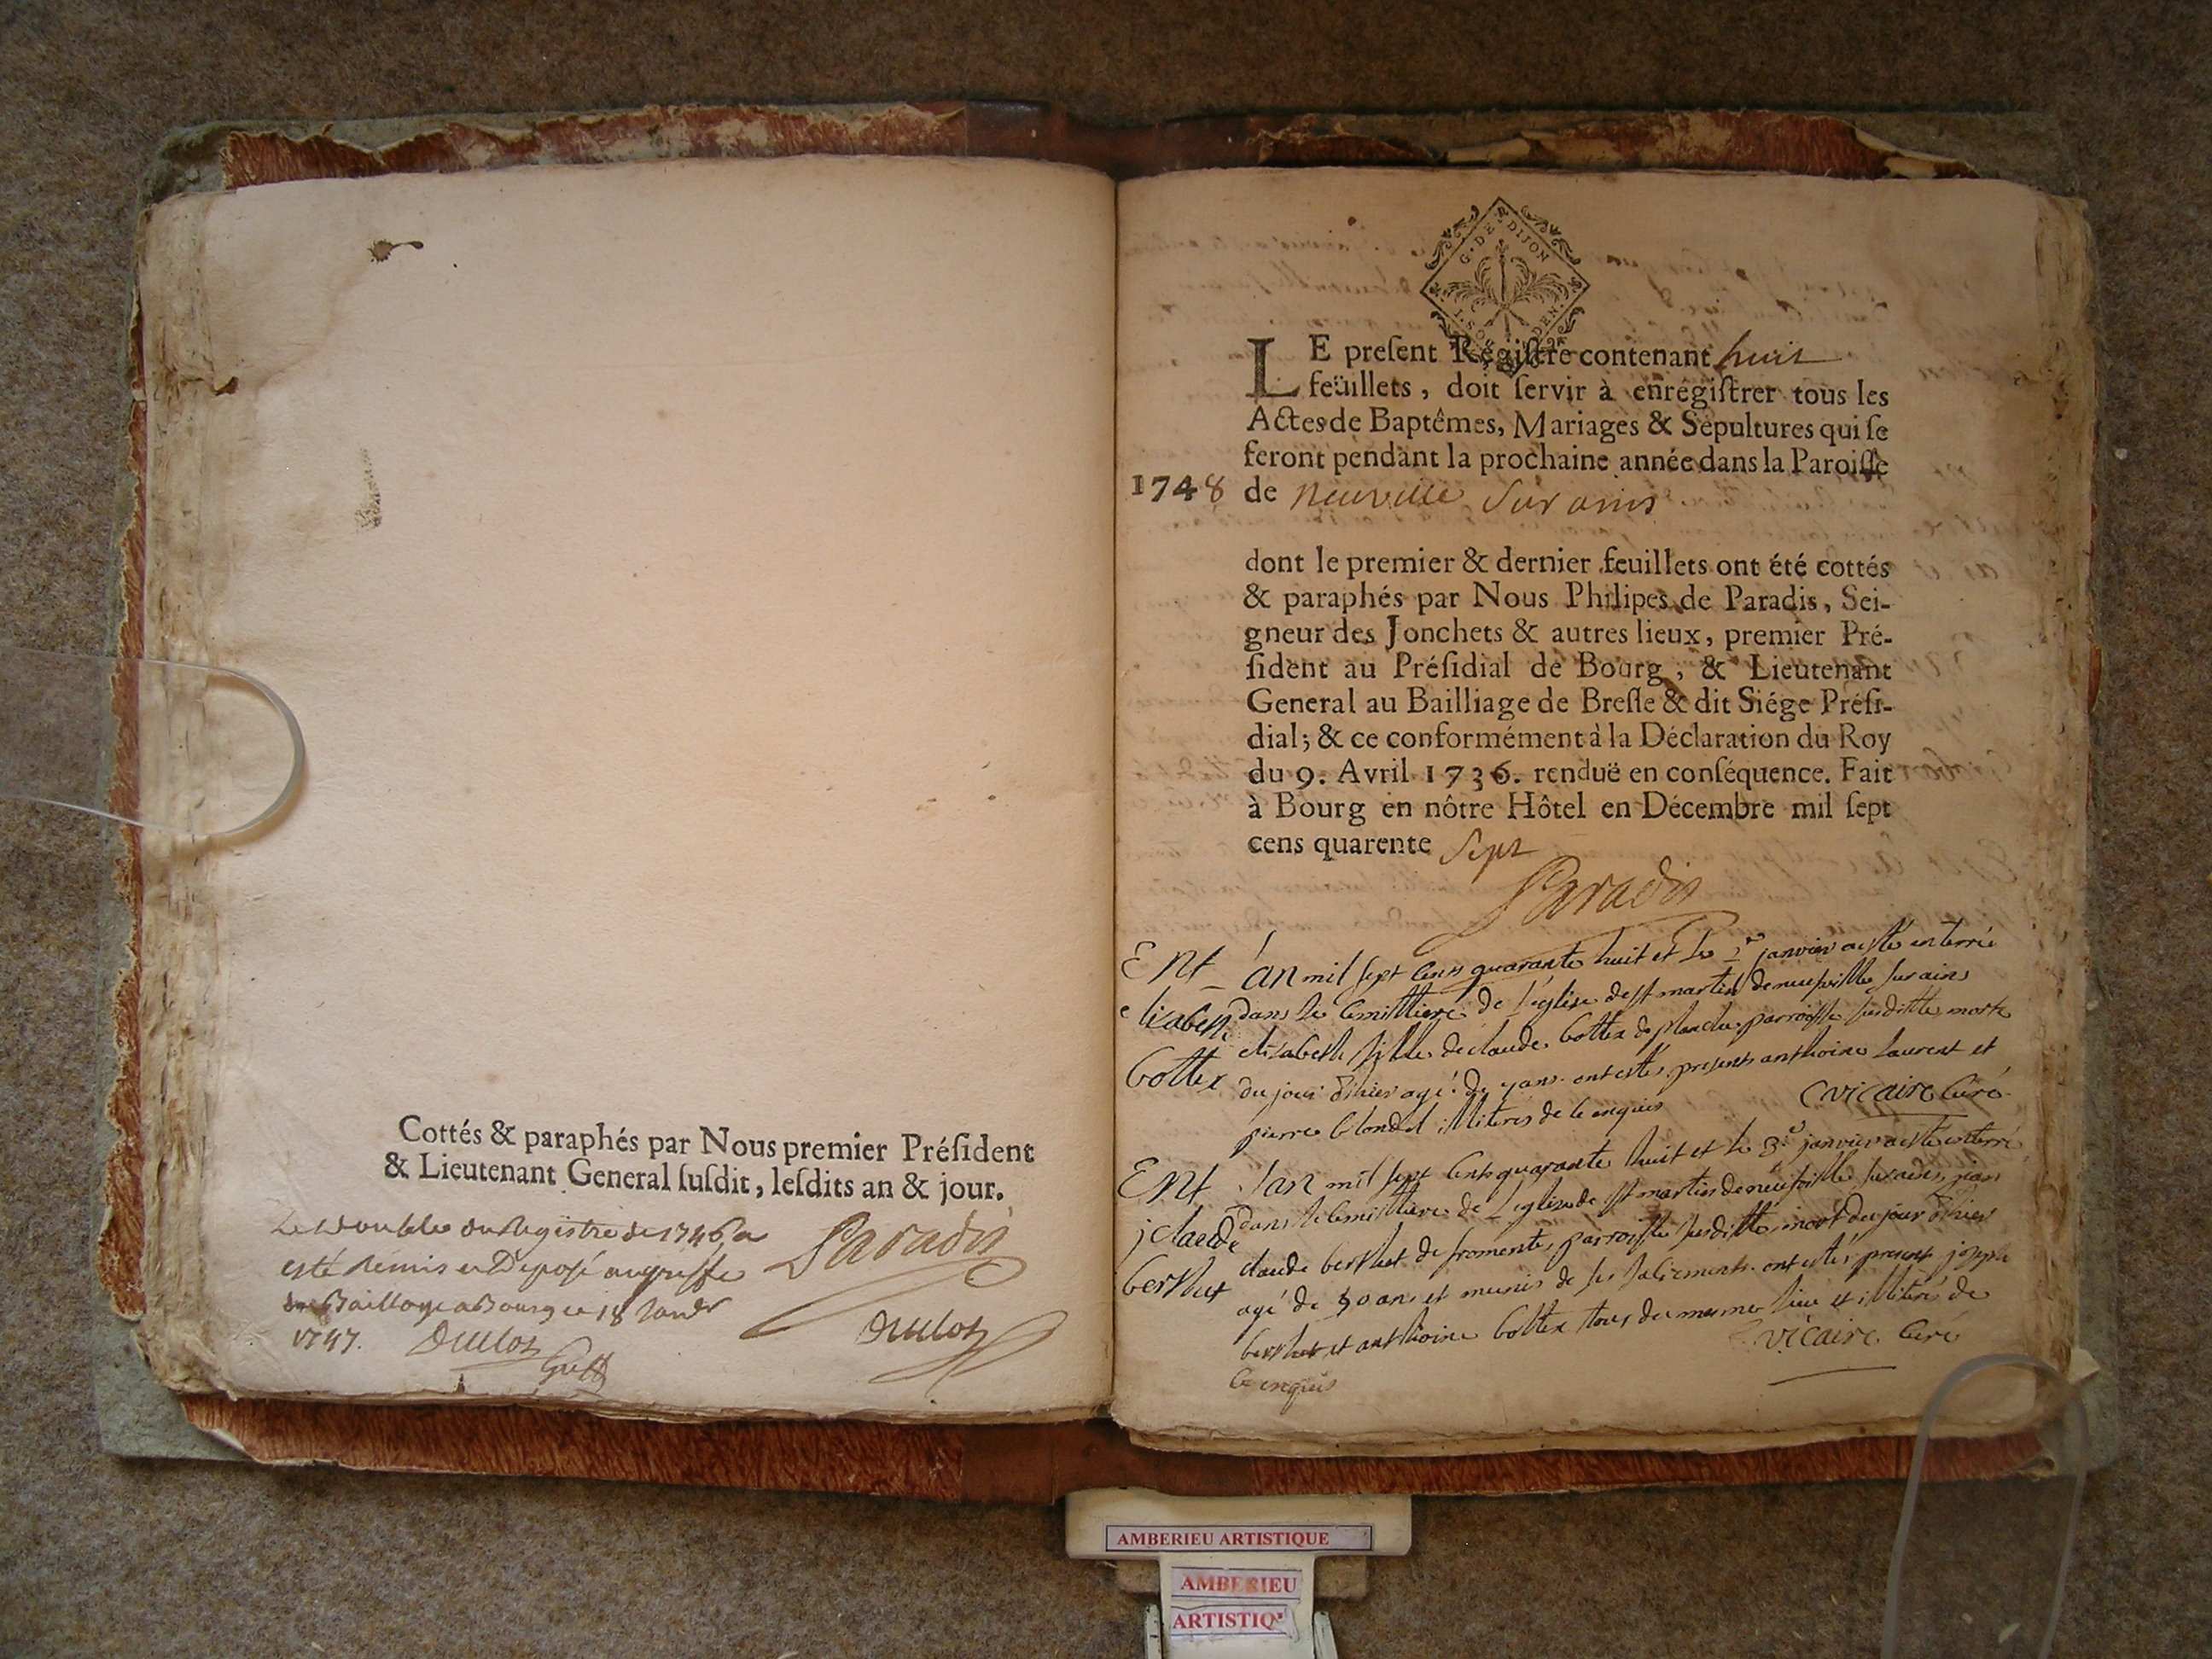 Cottés & paraphés par Nous premier Préſident
& Lieutenant General ſuſdit, leſdits an & jour.
Le double du Registre de 1746 a
esté remis et Deposé au greffe
du Baillage a Bourg ce 18 Janvr
1747. Duclos
Greff
Paradis
Duclos
G. DE DIJON
LE preſent Regiſtre contenant huit
feüillets, doit ſervir à enrégiſtrer tous les
Actes de Baptêmes, Mariages & Sépultures qui ſe
feront pendant la prochaine année dans la Paroiſſe
1748 de neuville sur ains
dont le premier & dernier feuillets ont été cottés
& paraphés par Nous Philipes de Paradis, Sei-
gneur des Jonchets & autres lieux, premier Pré-
ſident au Préſidial de Bourg, & Lieutenant
General au Bailliage de Breſſe & dit Siége Préſi-
dial; & ce conformément à la Déclaration du Roy
du 9. Avril 1736. renduë en conſéquence. Fait
à Bourg en nôtre Hôtel en Décembre mil ſept
cens quarente sept
Paradis
Ent l'an mil sept cens quarante huit et le 2e janvier a esté enterrée
elizabeth dans le cemittiere de l'eglise de st martin de neufville sur ains
bottex elizabeth fille de claude bottex de planche parroisse susditte morte
du jour d'hier agé de 7 ans ont estés presents anthoine laurent et
pierre blondel illiteres de ce enquis C vicaire curé
Ent l'an mil sept cents quarante huit et le 3e janvier a esté enterré
j claude dans le cemittiere de l'eglise de st martin de neufville sur ains, jean
berthet claude berthet de fromente, parroisse susditte, mort du jour d'hier
agé de 50 ans et munis de ses sacrements ont estés present joseph
berthet et anthoine bottex tous du mesme lieu et illiterés de
ce enquis C vicaire curé
AMBERIEU ARTISTIQUE
AMBERIEU
ARTISTIQ